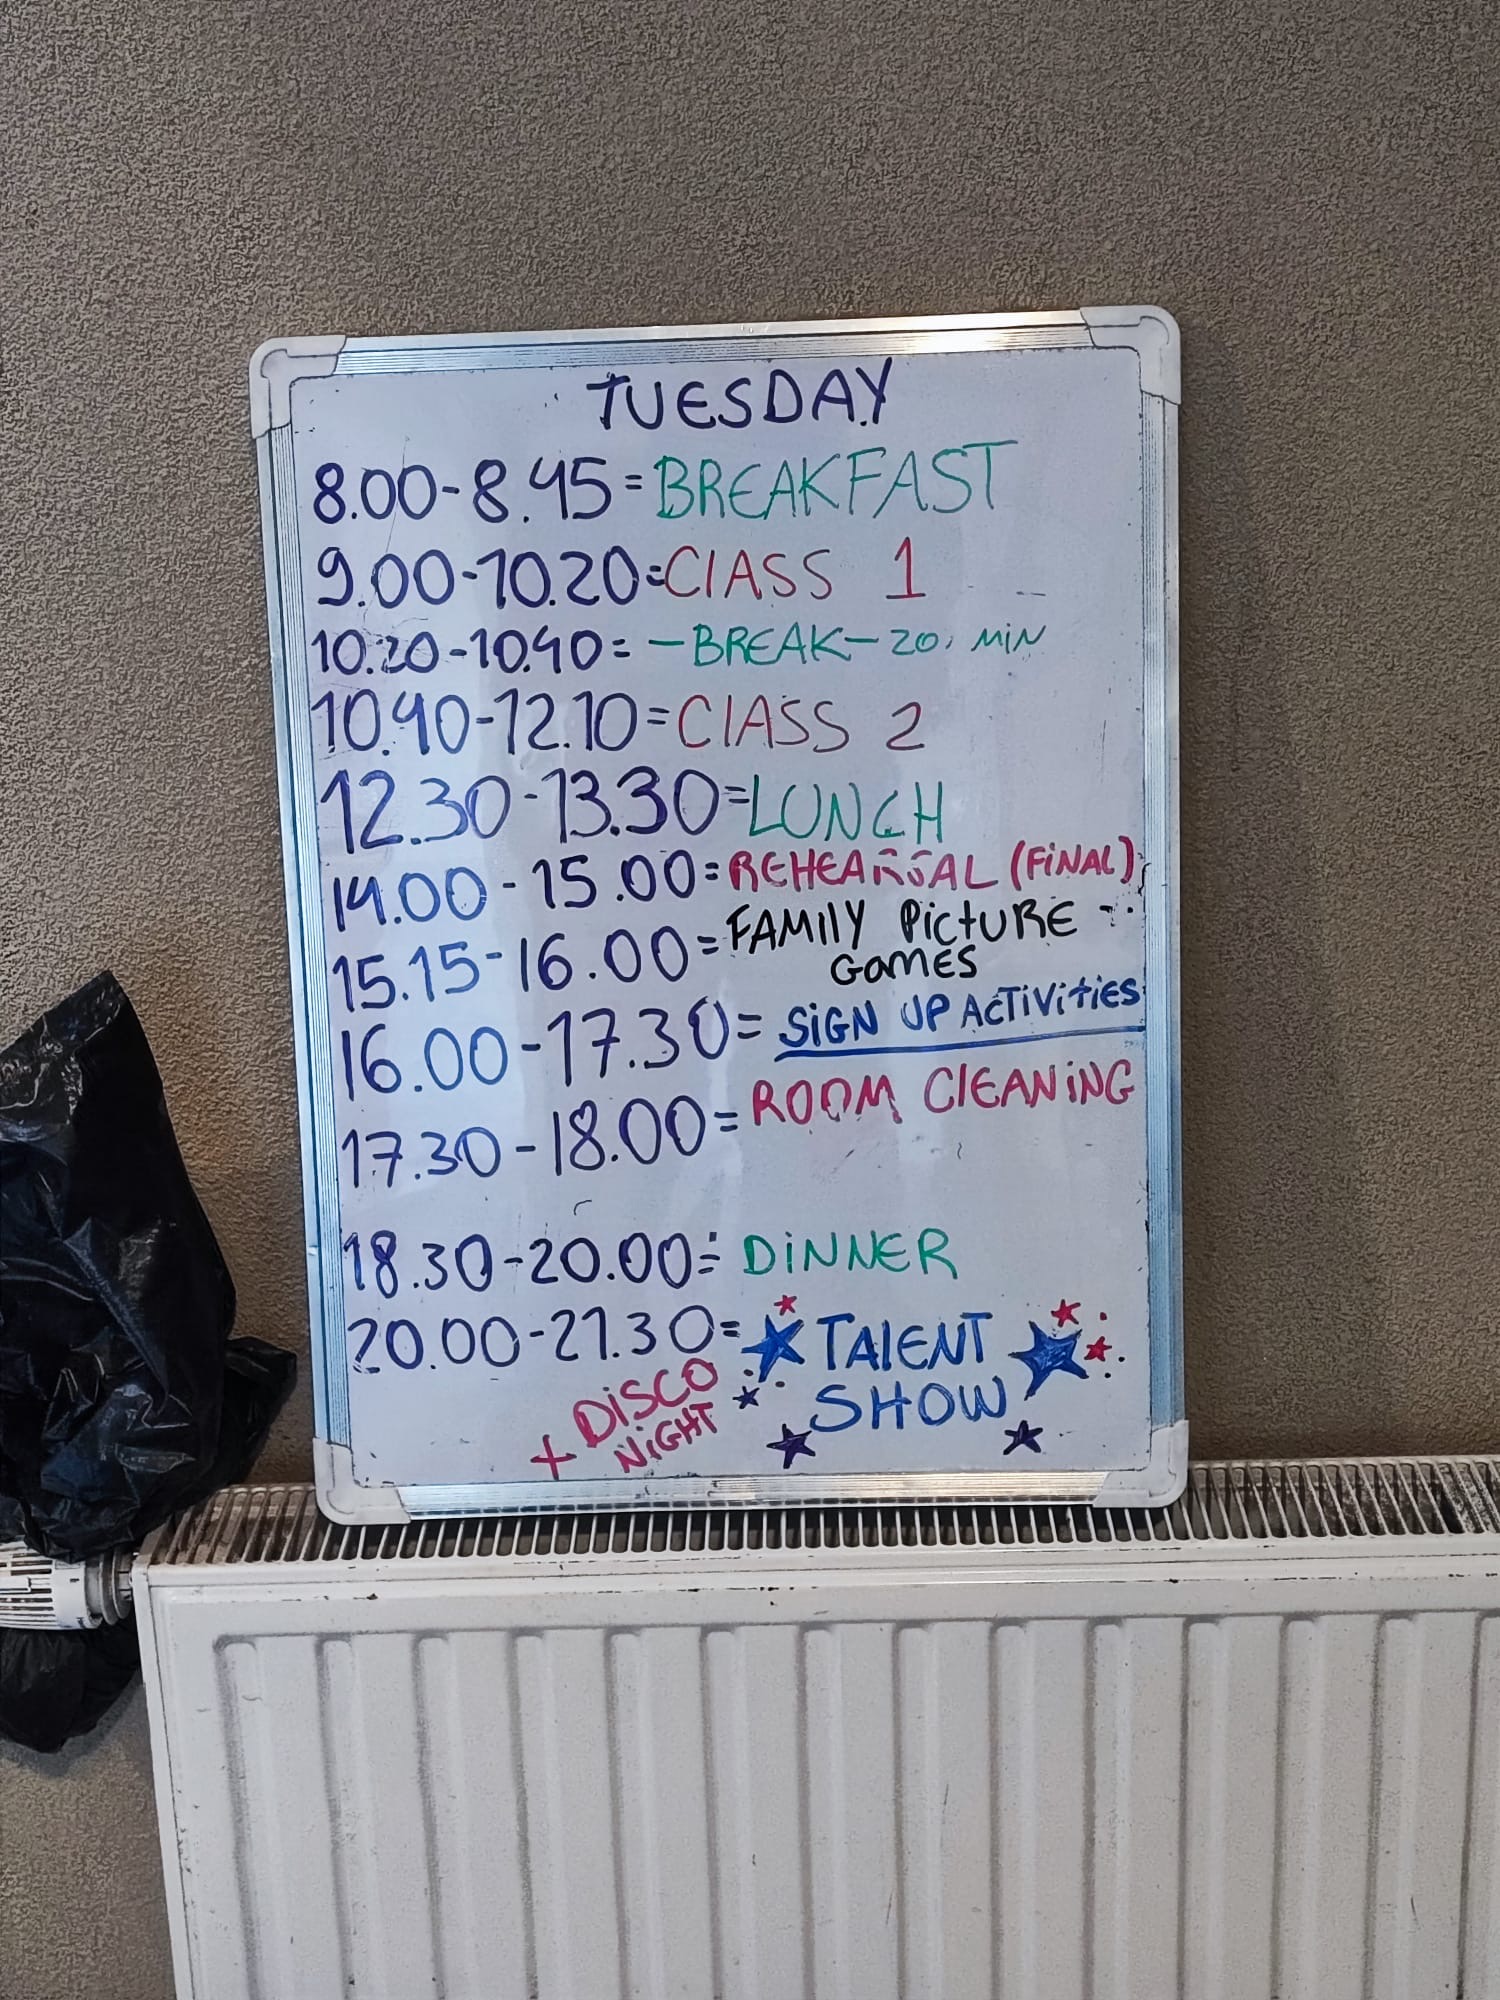 TUESDAY
8.00-8.45=BREAKFAST
9.00-10.20=CLASS 1
10.20-10.40= -BREAK- 20. MIN
10.40-12.10=CLASS 2
12.30-13.30=LUNCH
14.00-15.00=REHEARSAL (FINAL)
15.15-16.00=FAMILY PICTURE -
GAMES
16.00-17.30= SIGN UP ACTIVITIES
17.30-18.00=ROOM CLEANING
18.30-20.00= DINNER
20.00-21.30= TALENT
SHOW
+ DISCO
NIGHT